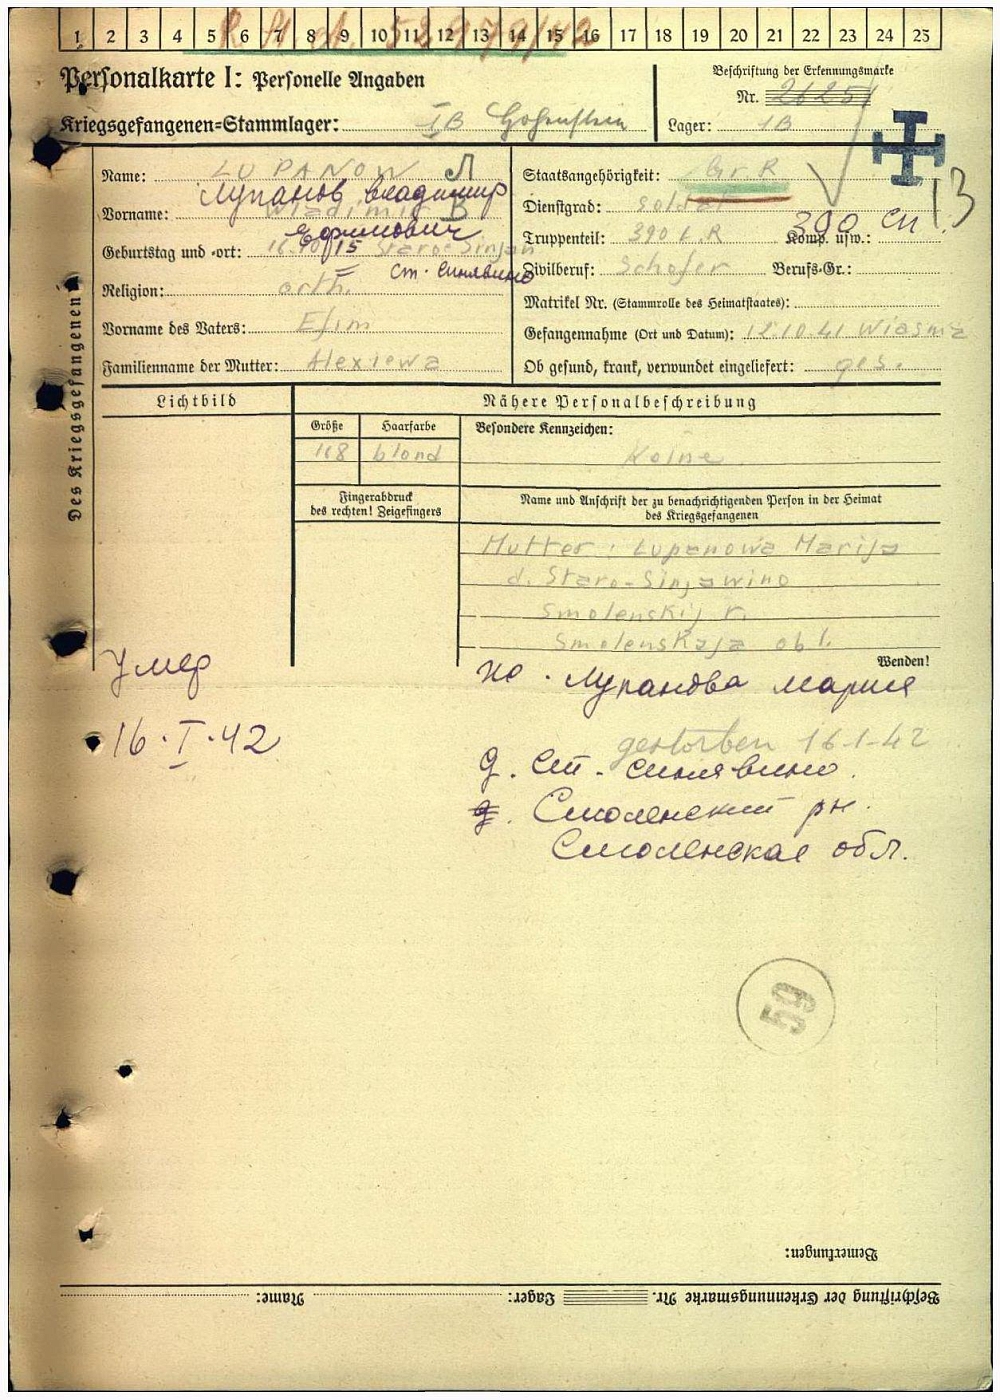 1 2 3 4 5 6 7 8 9 10 11 12 13 14 15 16 17 18 19 20 21 22 23 24 25
Personalkarte I: Personelle Angaben
Kriegsgefangenen=Stammlager: IB Hohenstein
Beschriftung der Erkennungsmarke
Nr.
Lager: IB
Des Kriegsgefangenen
Name: LUPANOW Л
Лупанов Владимир
Vorname: Wladimir В
Ефимович
Geburtstag und =ort: 16.10.15 Staroe Sinjaw
Ст. Синявино
Religion: orth.
Vorname des Vaters: Efim
Familienname der Mutter: Alexiewa
Staatsangehörigkeit: Gr. R
Dienstgrad: Soldat
390 сп 13
Truppenteil: 390 t. R Komp. usw.:
Zivilberuf: Schofer Berufs=Gr.:
Matrikel Nr. (Stammrolle des Heimatstaates):
Gefangennahme (Ort und Datum): 12.10.41 Wiasma
Ob gesund, krank, verwundet eingeliefert: ges.
Lichtbild
Nähere Personalbeschreibung
Größe Haarfarbe Besondere Kennzeichen:
168 blond Keine
Fingerabdruck
des rechten! Zeigefingers
Name und Anschrift der zu benachrichtigenden Person in der Heimat
des Kriegsgefangenen
Mutter: Lupanowa Marija
d. Staro-Sinjawino
Smolenskij r.
Smolenskaja obl.
Wenden!
Умер
16.I.42
Лупанова Мария
gestorben 16-1-42
д. Ст. Синявино.
Смоленский рн.
Смоленская обл.
59
Bemerkungen:
Beschriftung der Erkennungsmarke Nr. Lager: Name: